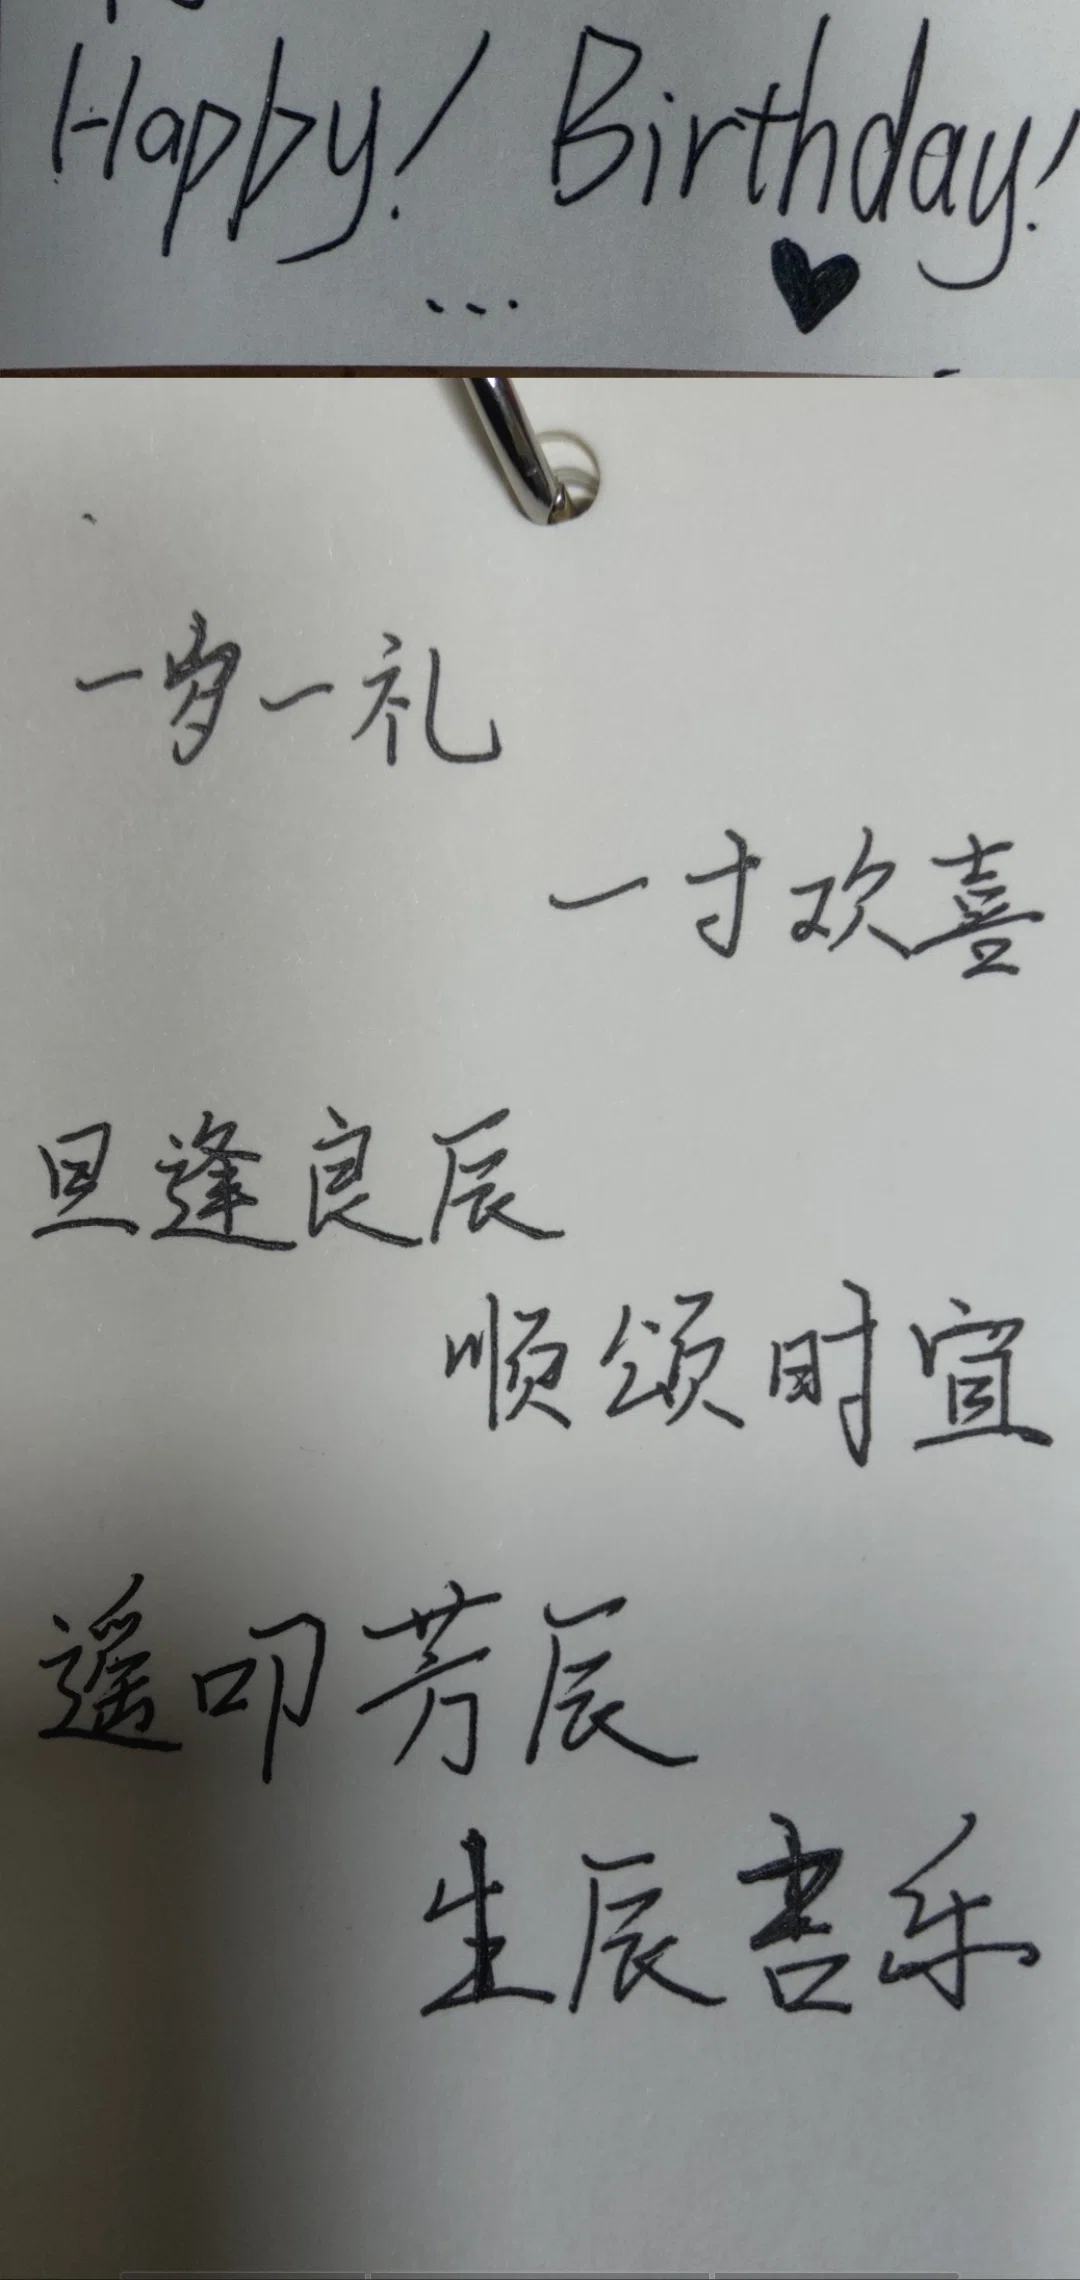 Happy! Birthday!
...
一岁一礼
一寸欢喜
旦逢良辰
顺颂时宜
遥叩芳辰
生辰吉乐